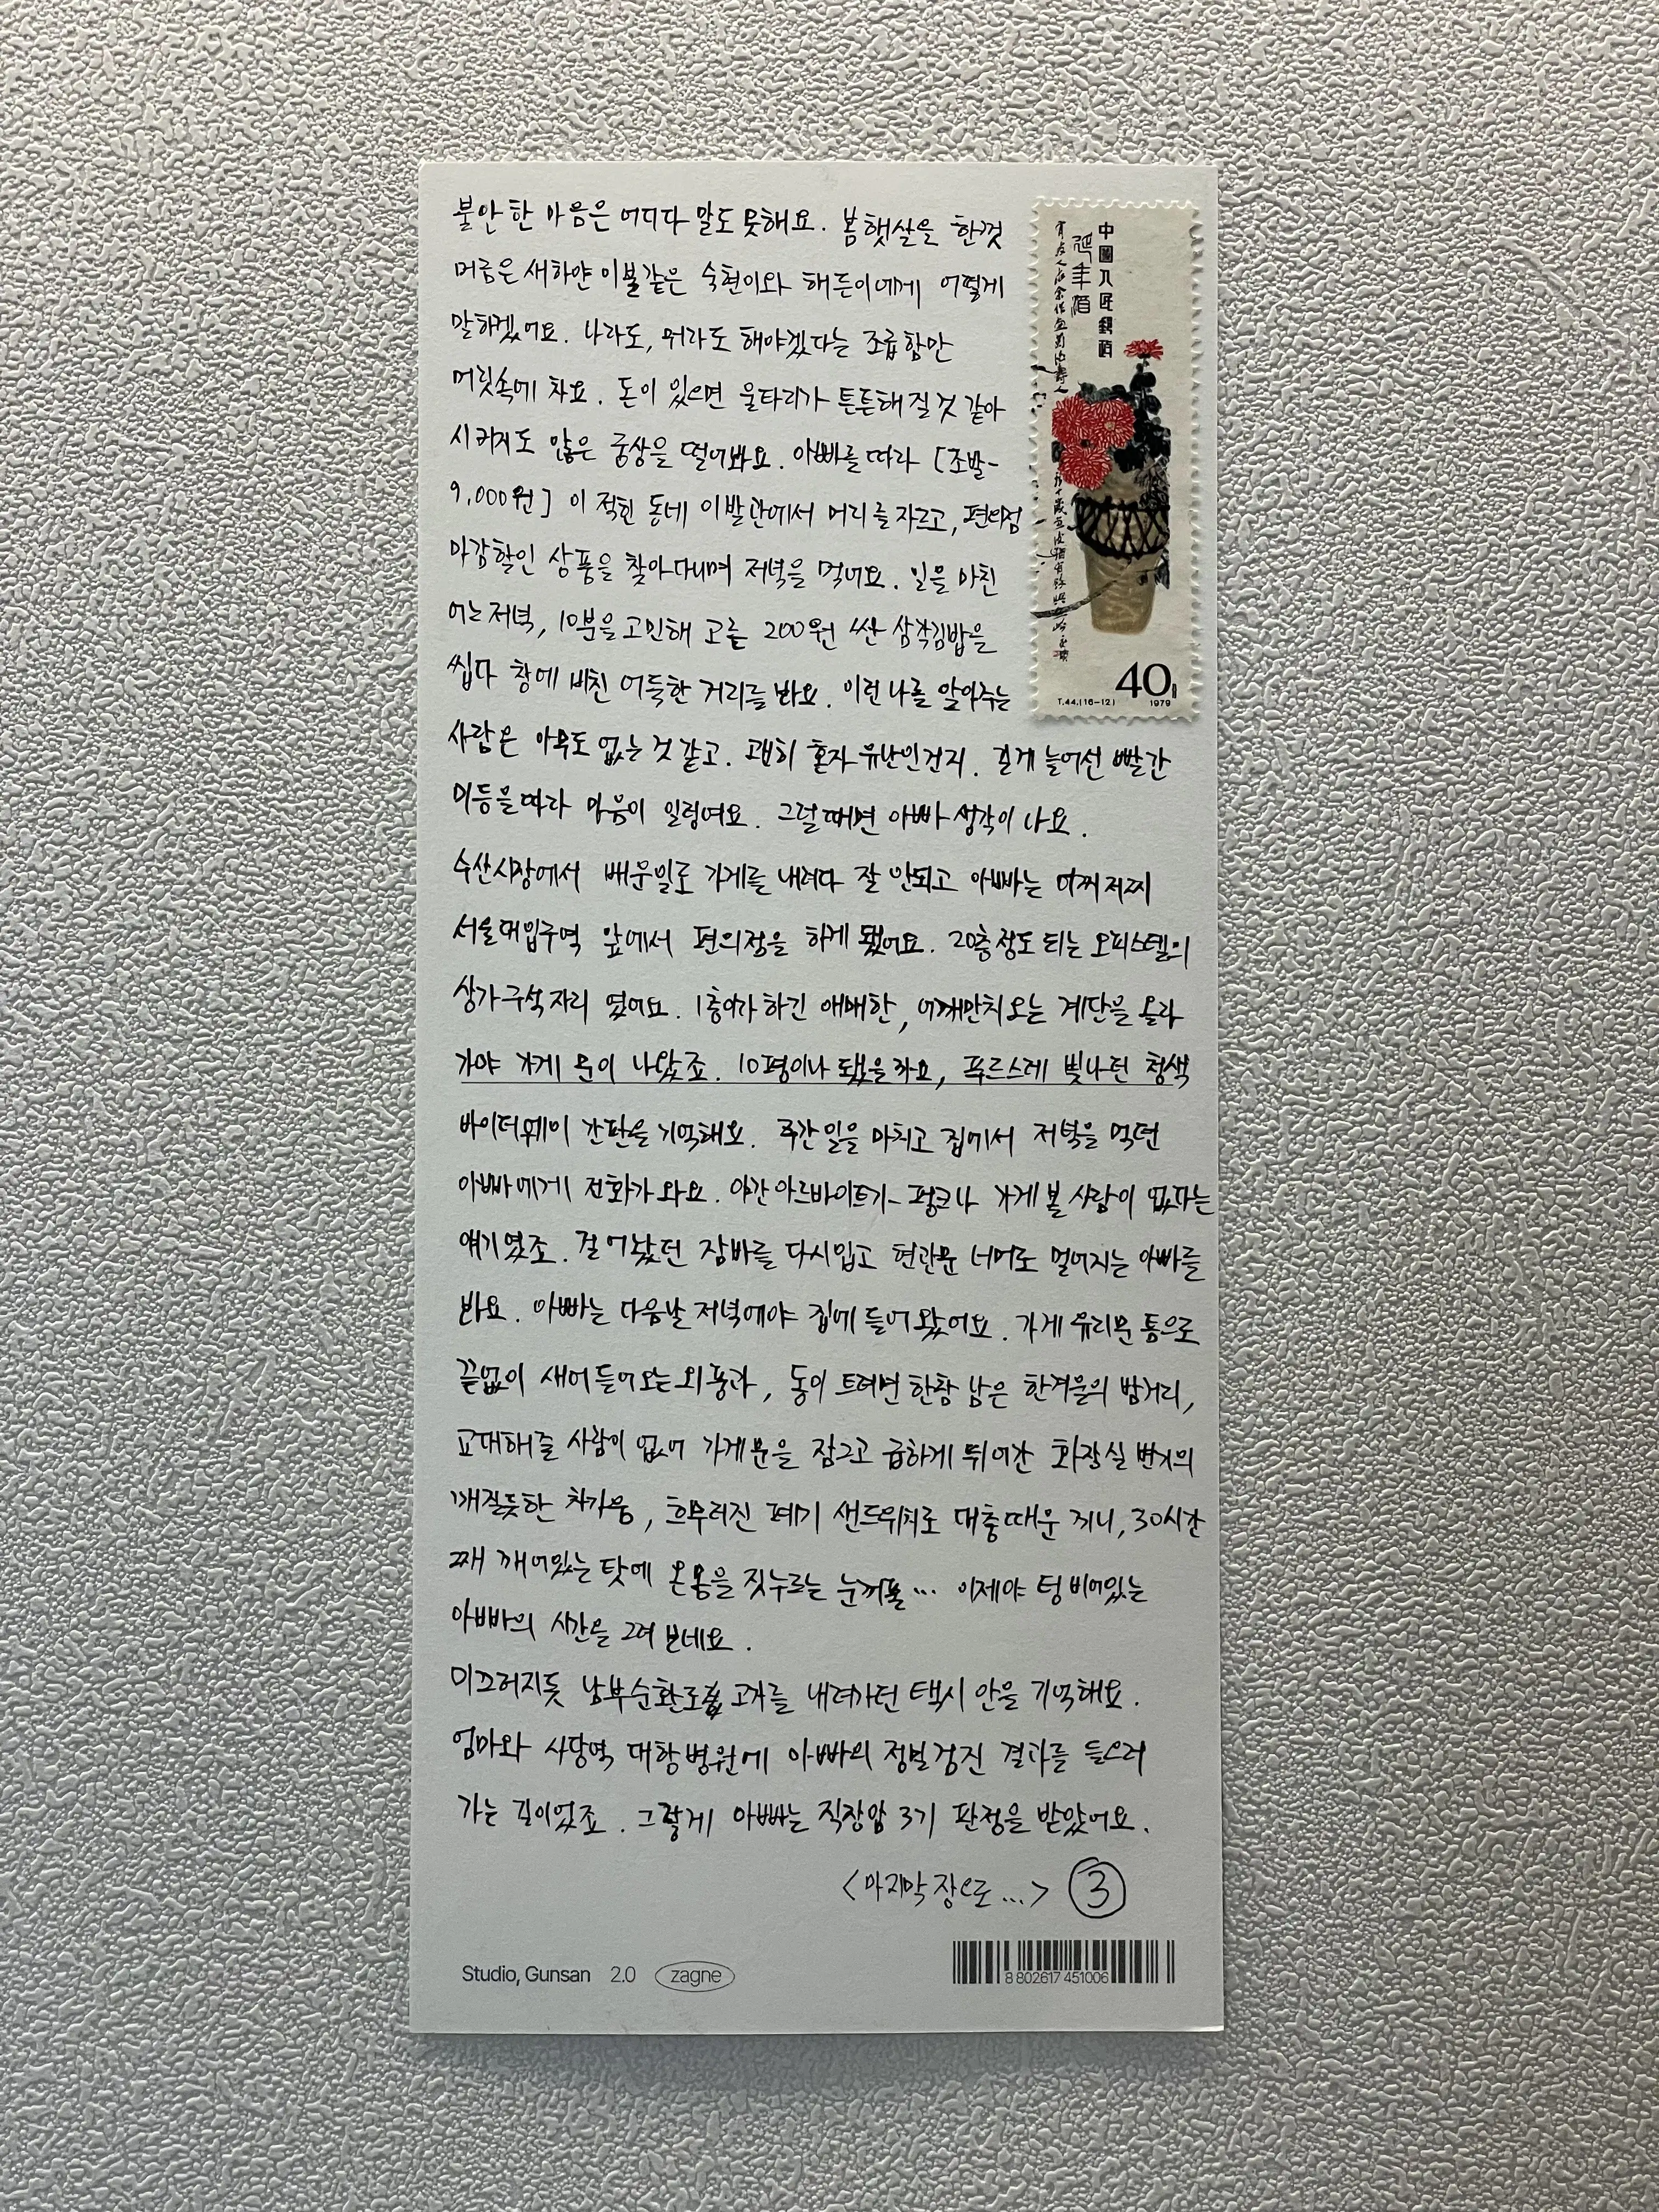 불안한 마음은 어디다 말도 못해요. 봄햇살을 한껏
머금은 새하얀 이불같은 숙현이와 해든이에게 어떻게
말하겠어요. 나라도, 뭐라도 해야겠다는 조급함만
머릿속에 차요. 돈이 있으면 울타리가 튼튼해질것 같아
시키지도 않은 궁상을 떨어봐요. 아빠를 따라 [조발-
9,000원] 이 적힌 동네 이발관에서 머리를 자르고, 편의점
마감할인 상품을 찾아다니며 저녁을 먹어요. 일을 마친
어느 저녁, 10분을 고민해 고른 200원 싼 삼각김밥을
씹다 창에 비친 어둑한 거리를 봐요. 이런 나를 알아주는
사람은 아무도 없는 것 같고. 괜히 혼자 유난인건지. 길게 늘어선 빨간
미등을 따라 마음이 일렁여요. 그럴때면 아빠 생각이 나요.
수산시장에서 배운일로 가게를 내려다 잘 안되고 아빠는 어찌저찌
서울대입구역 앞에서 편의점을 하게 됐어요. 20층정도 되는 오피스텔의
상가 구석자리 였어요. 1층이라 하긴 애매한, 어깨만치 오는 계단을 올라
가야 가게 문이 나왔죠. 10평이나 됐을까요, 푸르스레 빛나던 청색
바이더웨이 간판을 기억해요. 주간일을 마치고 집에서 저녁을 먹던
아빠에게 전화가 와요. 야간 아르바이트가 펑크나 가게 볼 사람이 없다는
얘기였죠. 걸어놨던 잠바를 다시입고 현관문 너머로 멀어지는 아빠를
봐요. 아빠는 다음날 저녁에야 집에 들어왔어요. 가게 유리문 틈으로
끝없이 새어들어오는 외풍과, 동이 트려면 한참 남은 한겨울의 밤거리,
교대해줄 사람이 없어 가게문을 잠그고 급하게 뛰어간 화장실 변기의
깨질듯한 차가움, 흐무러진 폐기 샌드위치로 대충때운 끼니, 30시간
째 깨어있는 탓에 온몸을 짓누르는 눈꺼풀... 이제야 텅 비어있는
아빠의 시간을 그려 보네요.
미끄러지듯 남부순환로 고개를 내려가던 택시 안을 기억해요.
엄마와 사당역 대항병원에 아빠의 정밀검진 결과를 들으러
가는 길이었죠. 그렇게 아빠는 직장암 3기 판정을 받았어요.
<마지막 장으로...> ③
中國人民郵政
延年酒
40分
T.44.(16-12) 1979
Studio, Gunsan 2.0 zagne
8 802617 451006